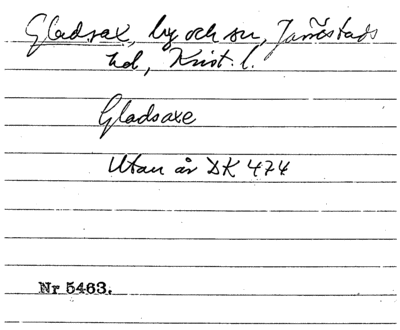 Gladsax, by och sn, Järrestads
hd, Krist. l.
Gladsaxe
Utan år DK 474
Nr 5463.